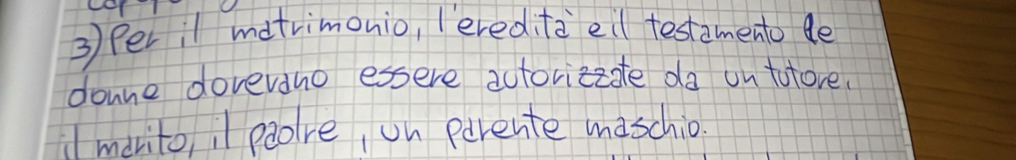 3) Per il matrimonio, l'eredità e il testamento le
donne dovevano essere autorizzate da un tutore,
il marito, il padre, un parente maschio.